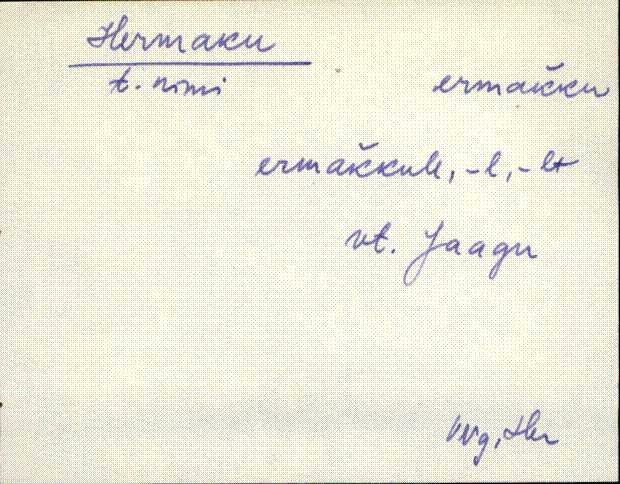 Hermaku
t. nimi
ermak̆ku
ermak̆kule, -l, -lt
vt. Jaagu